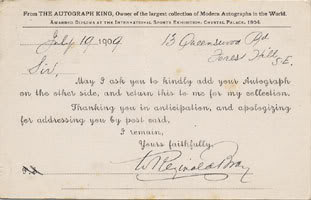 From THE AUTOGRAPH KING, Owner of the largest collection of Modern Autographs in the World.
AWARDED DIPLOMA AT THE INTERNATIONAL SPORTS EXHIBITION, CRYSTAL PALACE, 1904.
July 19 1909 13 Queenswood Rd
Forest Hill
Sir, S.E.
May I ask you to kindly add your Autograph
on the other side, and return this to me for my collection.
Thanking you in anticipation, and apologizing
for addressing you by post card,
I remain,
Yours faithfully,
W Reginald Bray